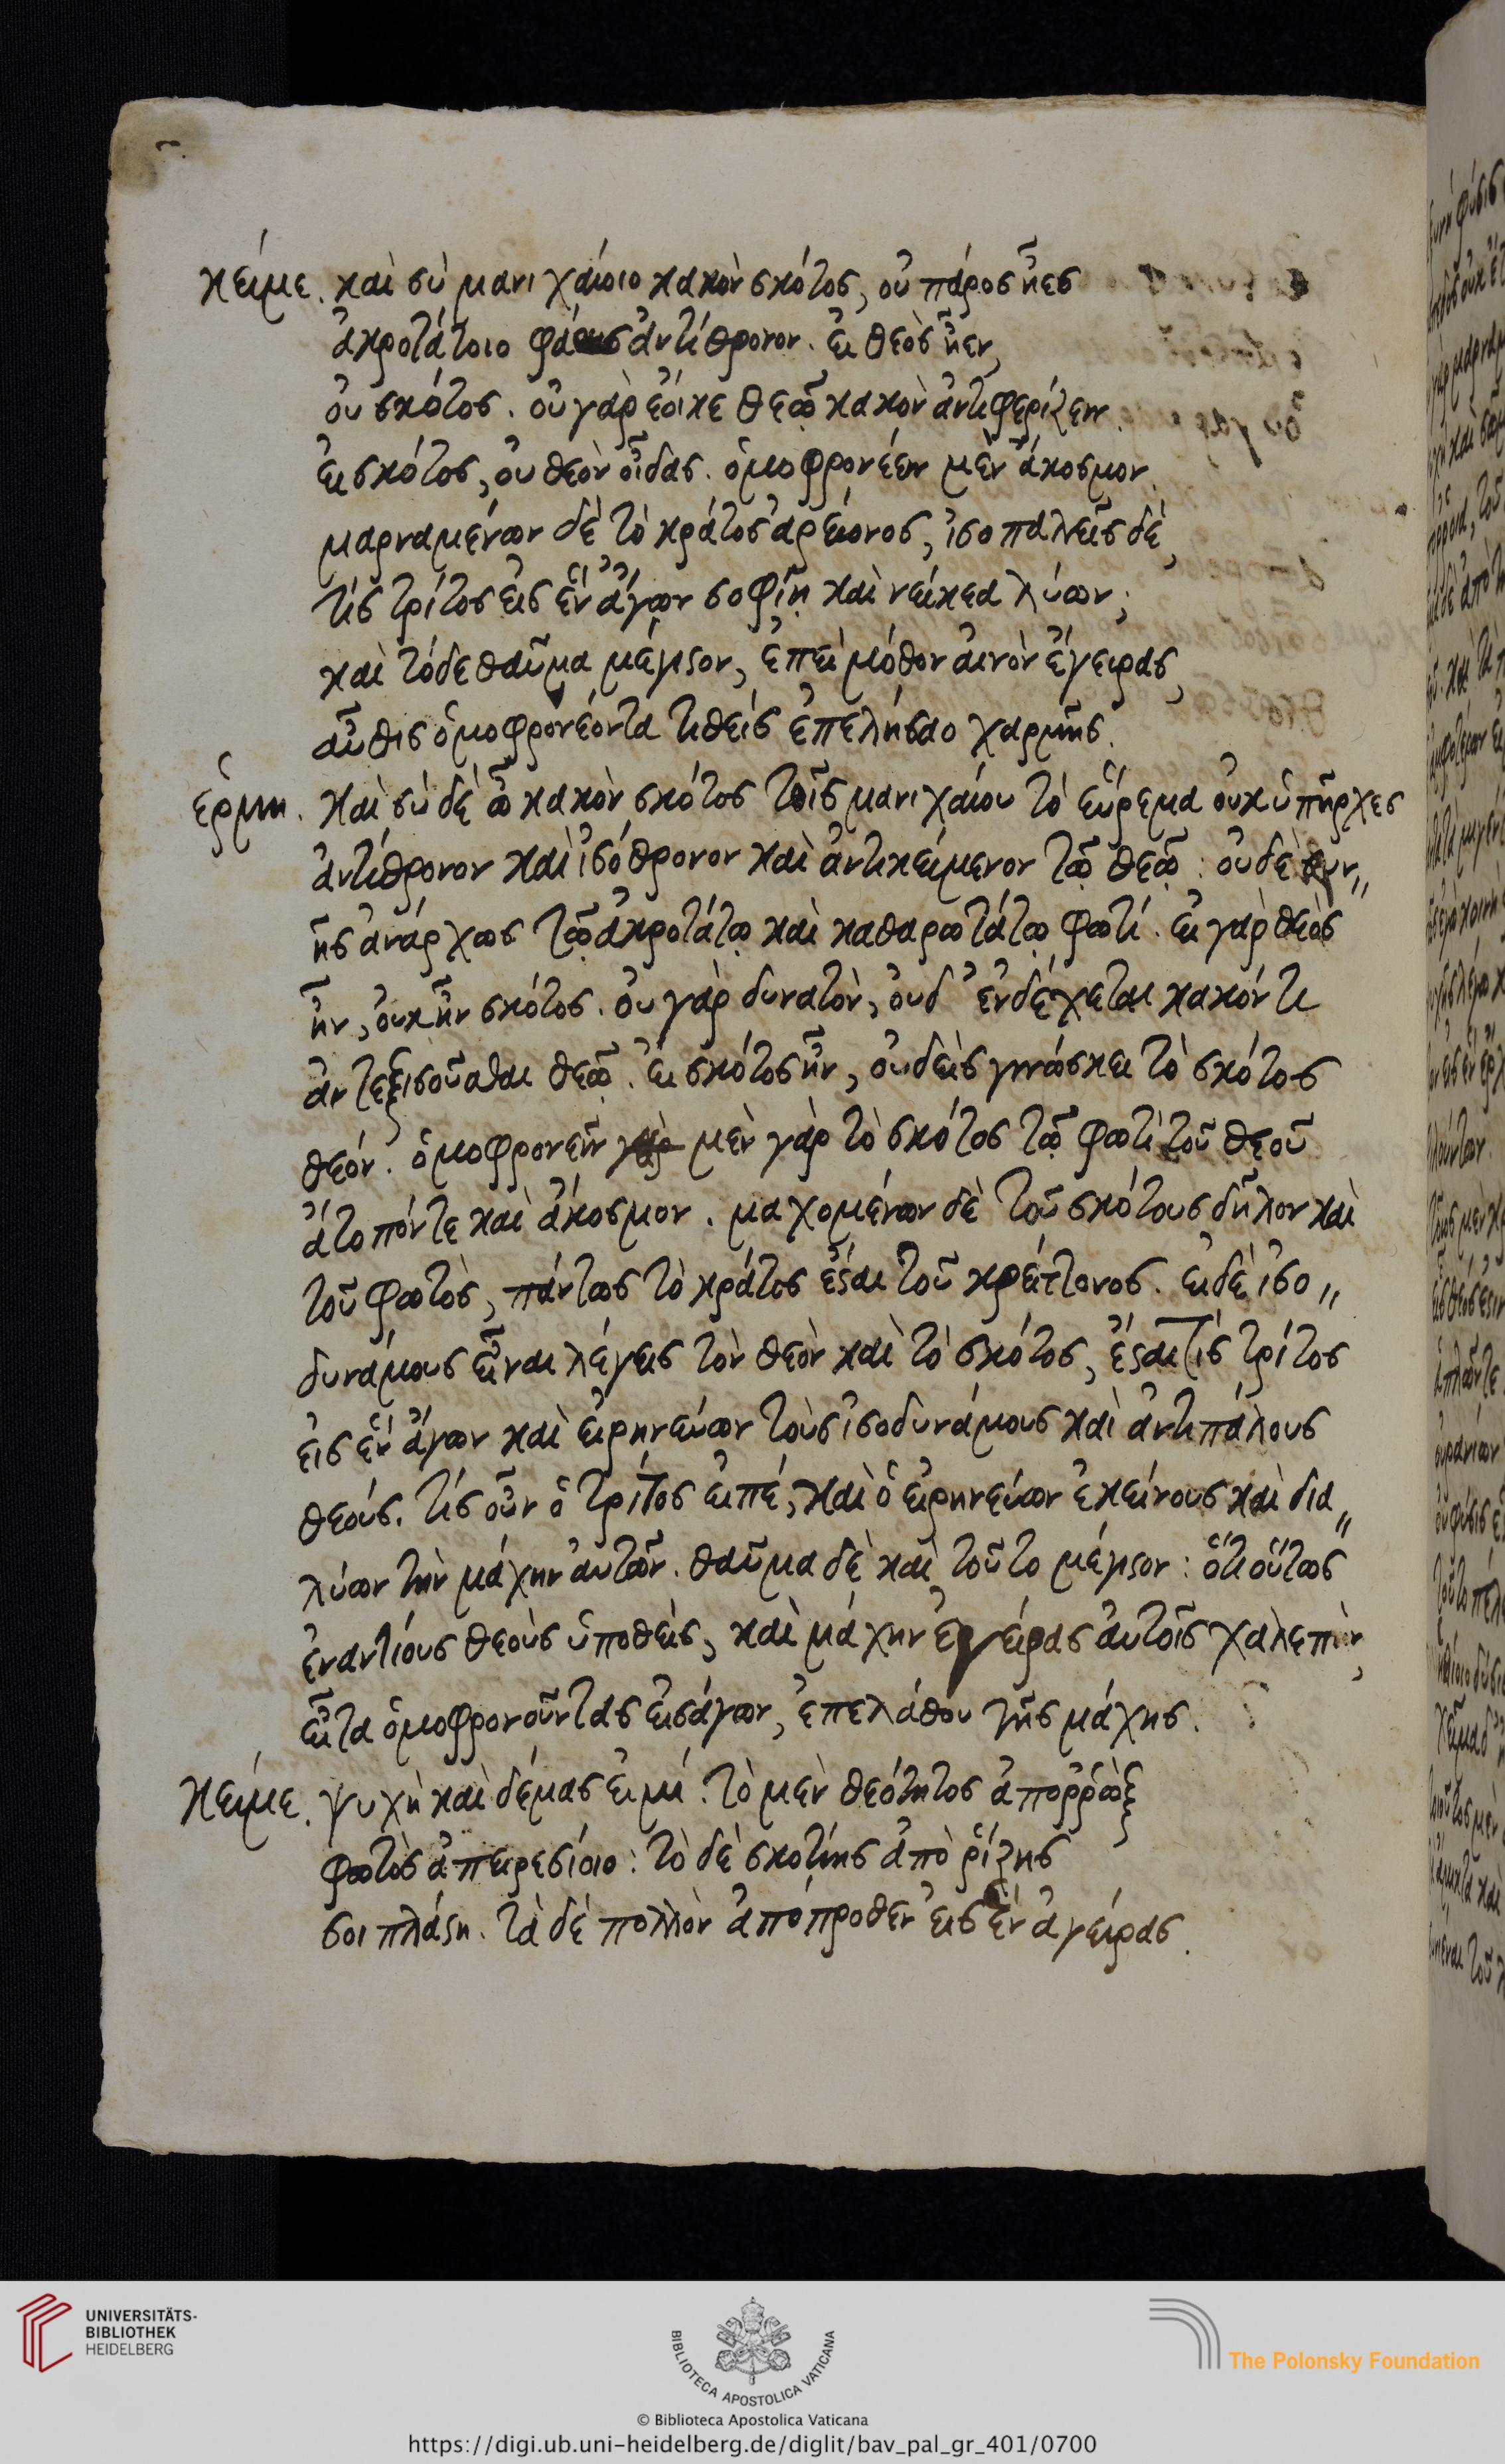 κείμε. καὶ σὺ μανιχαίοιο κακὸν σκότος, οὐ πάρος ἦες
ἀκροτάτοιο φάους ἀντίθρονον. εἰ θεὸς ἦεν,
οὐ σκότος. οὐ γὰρ ἔοικε θεῷ κακὸν ἀντιφερίζειν.
εἰ σκότος, οὐ θεὸν οἶδας. ὁμοφρονέειν μὲν ἄκοσμον.
μαρναμένων δὲ τὸ κράτος ἀρείονος, ἰσοπαλεῖς δὲ,
τίς τρίτος εἰς ἓν ἄγων σοφίῃ καὶ νείκεα λύων;
καὶ τόδε θαῦμα μέγιστον, ἐπεὶ μόθον αἰνὸν ἐγείρας,
αὖθις ὁμοφρονέοντα τιθεὶς ἐπελήσαο χάρμης.
ἑρμη. καὶ σὺ δὲ ὦ κακὸν σκότος τοῖς μανιχαίου τὸ εὕρεμα οὐκ ὑπῆρχες
ἀντίθρονον καὶ ἰσόθρονον καὶ ἀντικείμενον τῷ θεῷ: οὐδὲ συν"
ῆς ἀνάρχως τῷ ἀκροτάτῳ καὶ καθαρωτάτῳ φωτί. εἰ γὰρ θεὸς
ἦν, οὐκ ἦν σκότος. οὐ γὰρ δυνατὸν, οὐδ' ἐνδέχεται κακόν τι
ἀντεξισοῦσθαι θεῷ. εἰ σκότος ἦν, οὐδεὶς γινώσκει τὸ σκότος
θεόν. ὁμοφρονεῖν γὰρ μὲν γὰρ τὸ σκότος τῷ φωτὶ τοῦ θεοῦ
ἄτοπόν τε καὶ ἄκοσμον. μαχομένων δὲ τοῦ σκότους δῆλον καὶ
τοῦ φωτὸς, πάντως τὸ κράτος ἔσται τοῦ κρείττονος. εἰ δὲ ἰσο"
δυνάμους εἶναι λέγεις τὸν θεὸν καὶ τὸ σκότος, ἔσται τίς τρίτος
εἰς ἓν ἄγων καὶ εἰρηνεύων τοὺς ἰσοδυνάμους καὶ ἀντιπάλους
θεούς. τίς οὖν ὁ τρίτος εἰπέ, καὶ ὁ εἰρηνεύων ἐκείνους καὶ δια"
λύων τὴν μάχην αὐτῶν. θαῦμα δὲ καὶ τοῦτο μέγιστον: ὅτι οὕτως
ἐναντίους θεοὺς ὑποθεὶς, καὶ μάχην ἐγείρας αὐτοῖς χαλεπὴν,
εἶτα ὁμοφρονοῦντας εἰσάγων, ἐπελάθου τῆς μάχης.
κείμε. ψυχὴ καὶ δέμας εἰμί. τὸ μὲν θεότητος ἀπορρὼξ
φωτὸς ἀπειρεσίοιο: τὸ δὲ σκοτίης ἀπὸ ῥίζης
σοι πλάστη. τὰ δὲ πολλὸν ἀπόπροθεν εἰς ἓν ἀγείρας.
UNIVERSITÄTS-
BIBLIOTHEK
HEIDELBERG
BIBLIOTECA APOSTOLICA VATICANA
The Polonsky Foundation
© Biblioteca Apostolica Vaticana
https://digi.ub.uni-heidelberg.de/diglit/bav_pal_gr_401/0700